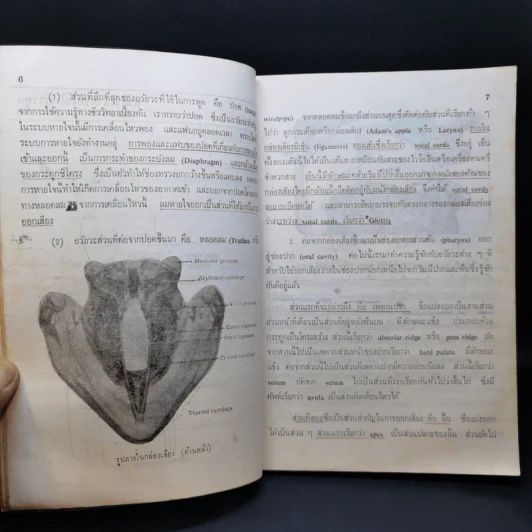 6
(1) ส่วนที่ลึกที่สุดของอวัยวะที่ใช้ในการพูด คือ ปอด
จากการใช้ความรู้ทางชีววิทยาเบื้องต้น เราทราบว่าปอด ซึ่งเป็นอวัยวะสำคัญ
ในระบบหายใจนั้นมีการเคลื่อนไหวพอง และแฟบอยู่ตลอดเวลา
ระบบการหายใจยังทำงานอยู่ การพองและแฟบของปอด
เข้าและออกนี้ เป็นการกระทำของกระบังลม (Diaphragm) และกล้ามเนื้อ
ของกระดูกซี่โครง ซึ่งเป็นตัวทำให้ช่องทรวงอกกว้างขึ้นหรือแคบลง
การหายใจนี้ทำให้เกิดการเคลื่อนไหวของอากาศเข้า และออกจากปอดโดยผ่าน
ทางหลอดลม จากการเคลื่อนไหวนี้ ลมหายใจออกเป็นส่วนที่ใช้มากในการ
ออกเสียง
(2) อวัยวะส่วนที่ต่อจากปอดขึ้นมา คือ หลอดลม (Trachea หรือ
Muscular process
Arytenoid cartilage
Cricoid cartilage
Thyroid cartilage
รูปภายในกล่องเสียง (ด้านหน้า)
7
windpipe) จากหลอดลมขึ้นมาถึงส่วนบนสุดซึ่งติดต่อกับส่วนที่เรียกทั่ว ๆ
ไปว่า ลูกกระเดือกหรือกล่องเสียง (Adam's apple หรือ Larynx) ภายใน
กล่องเสียงมีเอ็น (ligaments) สองเส้นซึ่งเรียกว่า vocal cords ขึงอยู่ เอ็น
สามารถเปิดปิดได้ และสามารถยืดมาบรรจบกันตรงกลางของกล่องเสียงช่อง
ว่างระหว่าง vocal cords เรียกว่า Glottis
3 ต่อจากกล่องเสียงขึ้นมาเป็นช่องอาหารส่วนต้น (pharynx) ออก
สู่ช่องปาก (oral cavity) ต่อไปนี้เรามาทำความรู้จักกับอวัยวะต่าง ๆ ที่
สำหรับใช้ออกเสียงภายในช่องปากนอกเหนือไปจากริมฝีปากและฟันซึ่งรู้จัก
กันดีอยู่แล้ว
ส่วนแรกที่จะกล่าวถึง คือ เพดานปาก ซึ่งแบ่งออกเป็นสามส่วน
ส่วนหน้าที่ต้นด้วยเป็นส่วนที่อยู่หลังฟันบน มีลักษณะแข็ง ประกอบด้วย
กระดูกเป็นโครงสร้าง ส่วนนี้เรียกว่า alveolar ridge หรือ gum ridge ถัด
จากส่วนนี้ไปเป็นเพดานส่วนหน้าของปากเรียกว่า hard palate มีลักษณะ
แข็ง ต่อจากส่วนนี้ไปเป็นส่วนที่เพดานปากมีความอ่อนนิ่มลง ส่วนนี้เรียกว่า
velum ถัดจาก velum ไปเป็นส่วนที่เราเรียกกันทั่วไปว่าลิ้นไก่ ซึ่งมี
ศัพท์เรียกว่า uvula เป็นส่วนที่เคลื่อนไหวได้
ส่วนที่สองซึ่งเป็นส่วนสำคัญในการออกเสียง คือ ลิ้น ซึ่งแบ่งออก
ได้เป็นส่วน ๆ ส่วนแรกเรียกว่า apex เป็นส่วนปลายของลิ้น ส่วนถัดไป